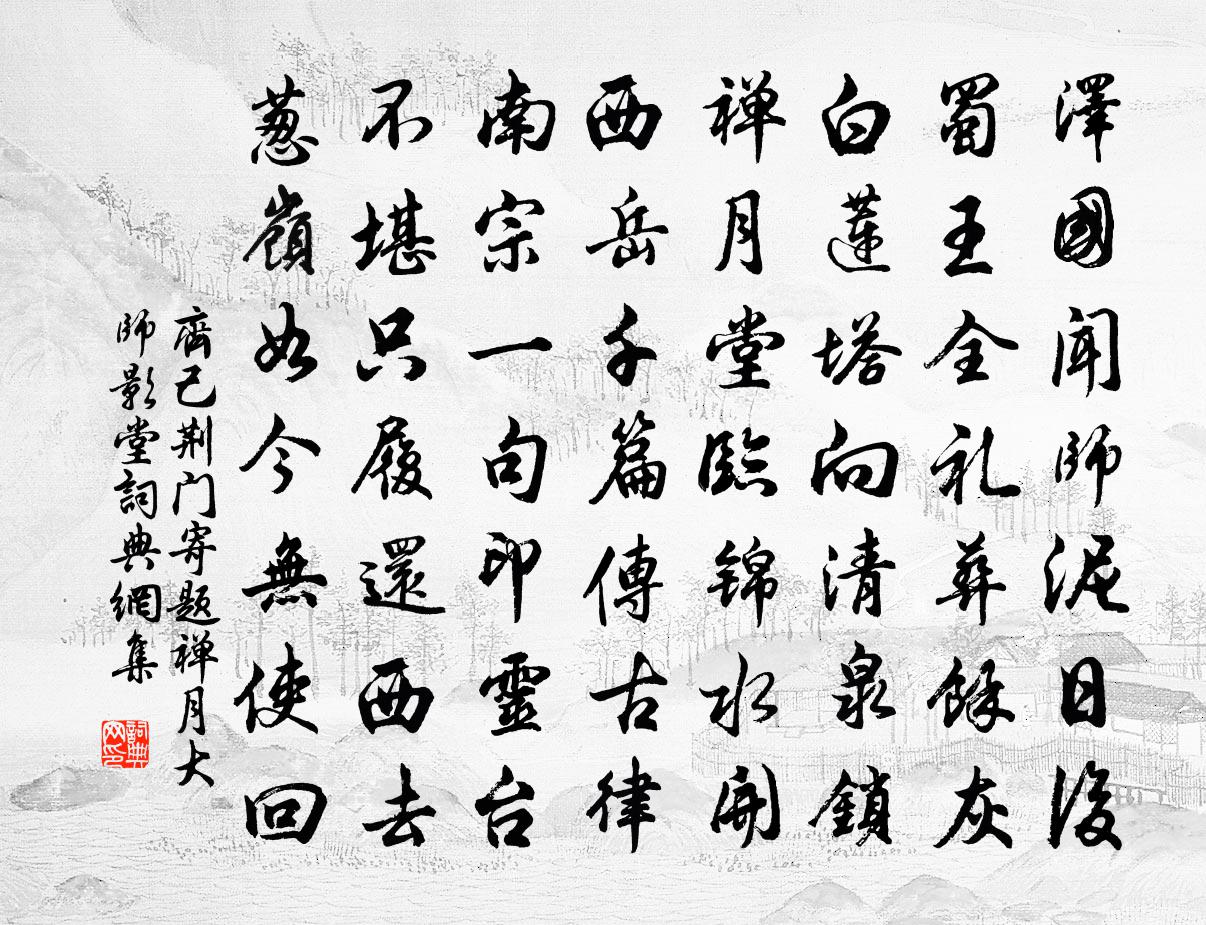 澤國聞師泥日後
蜀王全礼葬餘灰
白蓮塔向清泉鎖
禅月堂臨锦水開
西岳千篇傳古律
南宗一句印靈台
不堪只履還西去
葱嶺如今無使回
齊己荆门寄题禅月大
師影堂詞典網集
詞典网印